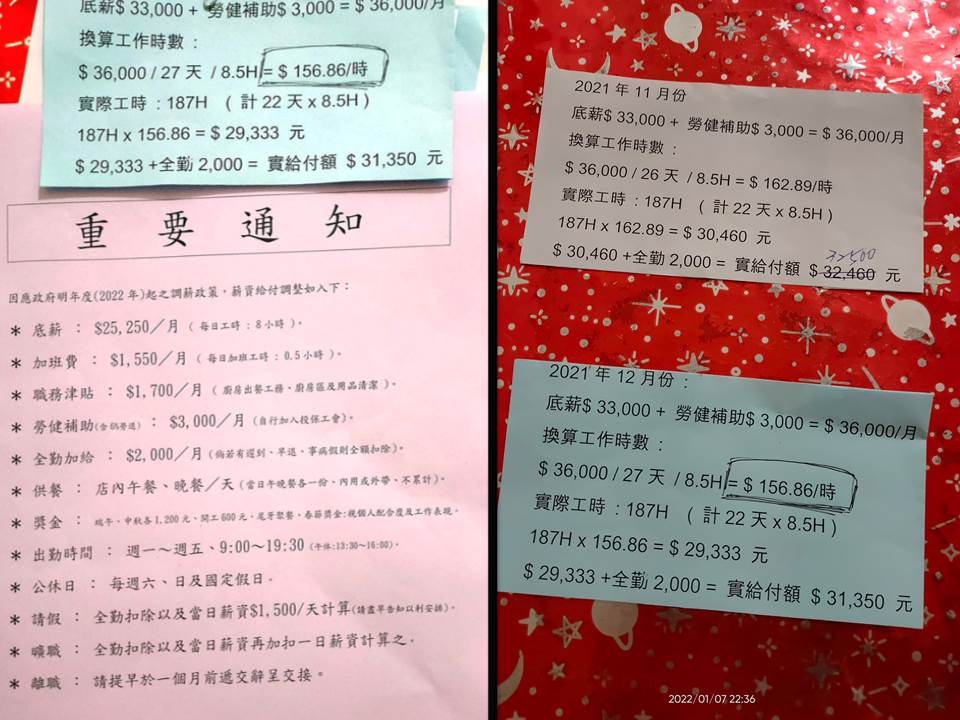 底薪$33,000＋ 勞健補助$3,000 = $36,000/月
換算工作時數：
$36,000 / 27 天 / 8.5H = $156.86/時
實際工時：187H （計 22 天 x 8.5H）
187H x 156.86 = $29,333 元
$29,333 +全勤 2,000 = 實給付額 $31,350 元
重要通知
因應政府明年度(2022 年)起之調薪政策，薪資給付調整如下：
* 底薪：$25,250／月（每日工時：8小時）。
* 加班費：$1,550／月（每日加班工時：0.5小時）。
* 職務津貼：$1,700／月（廚房出餐工務、廚房區及用品清潔）。
* 勞健補助(含 勞退)：$3,000／月（自行加入投保工會）。
* 全勤加給：$2,000／月（倘若有遲到、早退、事病假則全額扣除）。
* 供餐：店內午餐、晚餐／天（當日午晚餐各一份、內用或外帶、不累計）。
* 獎金：端午、中秋各1,200元、開工600元、尾牙聚餐、春節獎金:視個人配合度及工作表現。
* 出勤時間：週一～週五、9:00～19:30（午休:13:30～16:00）。
* 公休日：每週六、日及國定假日。
* 請假：全勤扣除以及當日薪資$1,500/天計算(請盡早告知以利安排)。
* 曠職：全勤扣除以及當日薪資再加扣一日薪資計算之。
* 離職：請提早於一個月前遞交辭呈交接。
2021 年 11 月份
底薪$33,000＋ 勞健補助$3,000 = $36,000/月
換算工作時數：
$36,000 / 26 天 / 8.5H = $162.89/時
實際工時：187H （計 22 天 x 8.5H）
187H x 162.89 = $30,460 元
32,500
$30,460 +全勤 2,000 = 實給付額 $32,460 元
2021 年 12 月份：
底薪$33,000＋ 勞健補助$3,000 = $36,000/月
換算工作時數：
$36,000 / 27 天 / 8.5H = $156.86/時
實際工時：187H （計 22 天 x 8.5H）
187H x 156.86 = $29,333 元
$29,333 +全勤 2,000 = 實給付額 $31,350 元
2022/01/07 22:36